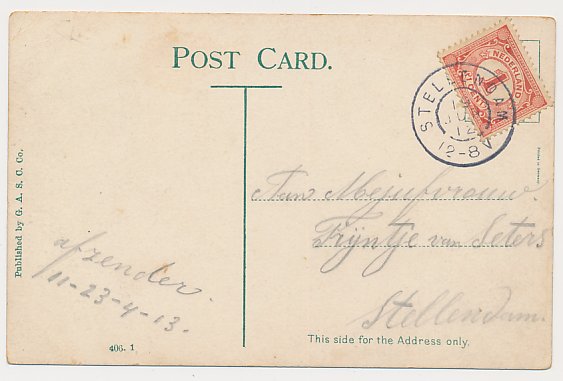 POST CARD.
NEDERLAND
1
CENT
STELLENDAM
12
12-8
Published by G. A. S. C. Co.
Aan Mejufvrouw.
Trijntje van Seters
Stellendam.
afzender.
11-23-4-13.
406. 1
This side for the Address only.